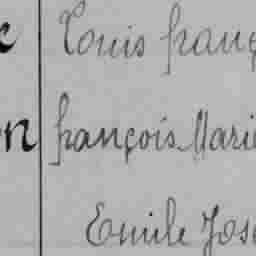 c Louis franç
on françois Marie
Emile Jose